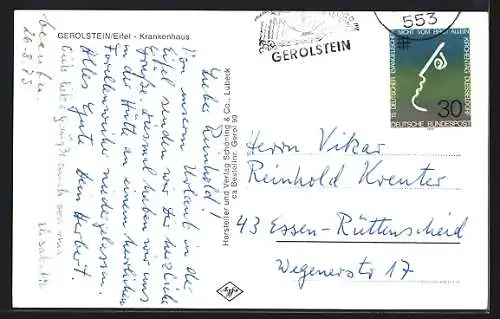 GEROLSTEIN/Eifel - Krankenhaus
beendet
20.8.73
Lieber Reinhold!
Von unserm Urlaub in der
Eifel senden wir Dir herzliche
Grüße. Diesmal haben wir uns
in der Hütte an einem herrlichen
Forellenweiher niedergelassen.
Alles Gute Dein Herbert.
Hersteller und Verlag Schöning & Co., Lübeck
ca Bestellnr. Gerol 99
Agfa
GEROLSTEIN
553
15. DEUTSCHER EVANGELISCHER KIRCHENTAG DÜSSELDORF
NICHT VOM BROT ALLEIN
30
DEUTSCHE BUNDESPOST
Herrn Vikar
Reinhold Kreuter
43 Essen-Rüttenscheid
Wegenerstr 17